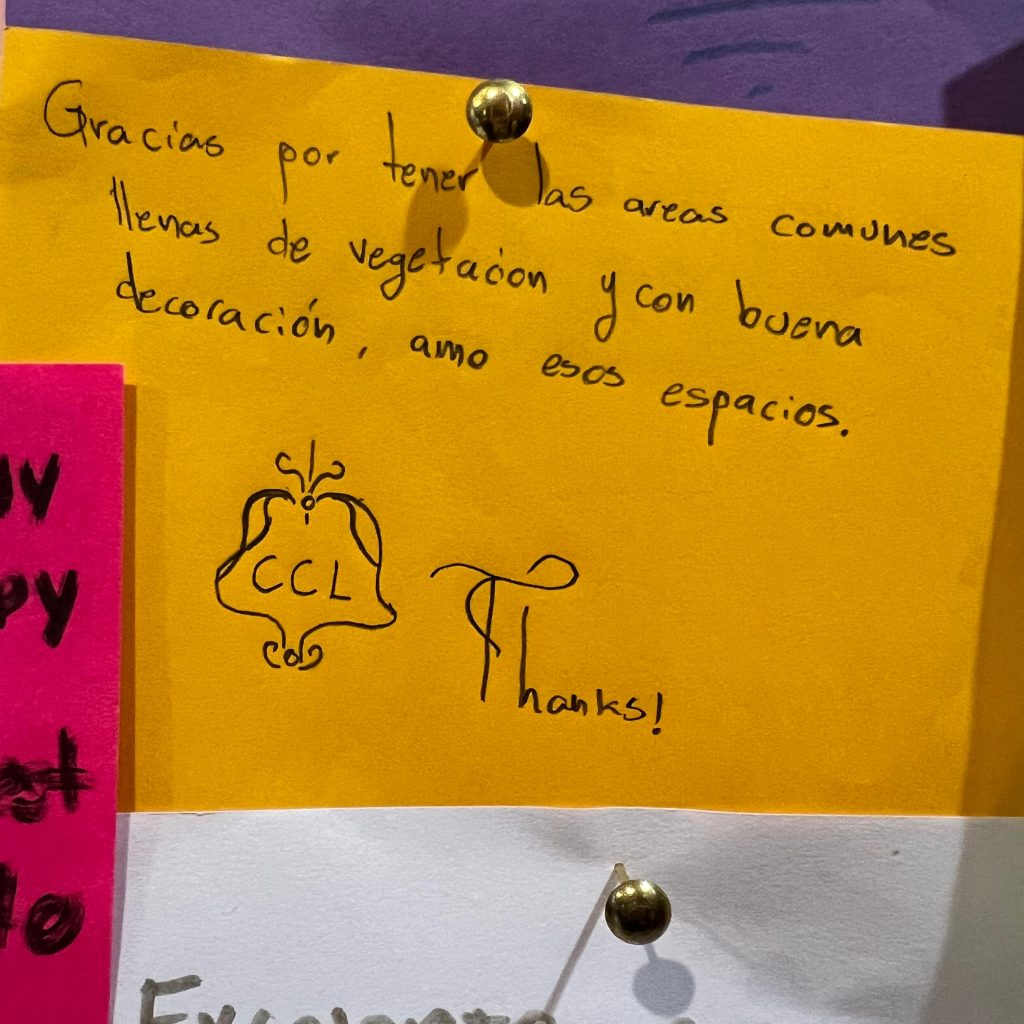 Gracias por tener las areas comunes
llenas de vegetacion y con buena
decoración, amo esos espacios.
CCL
Thanks!